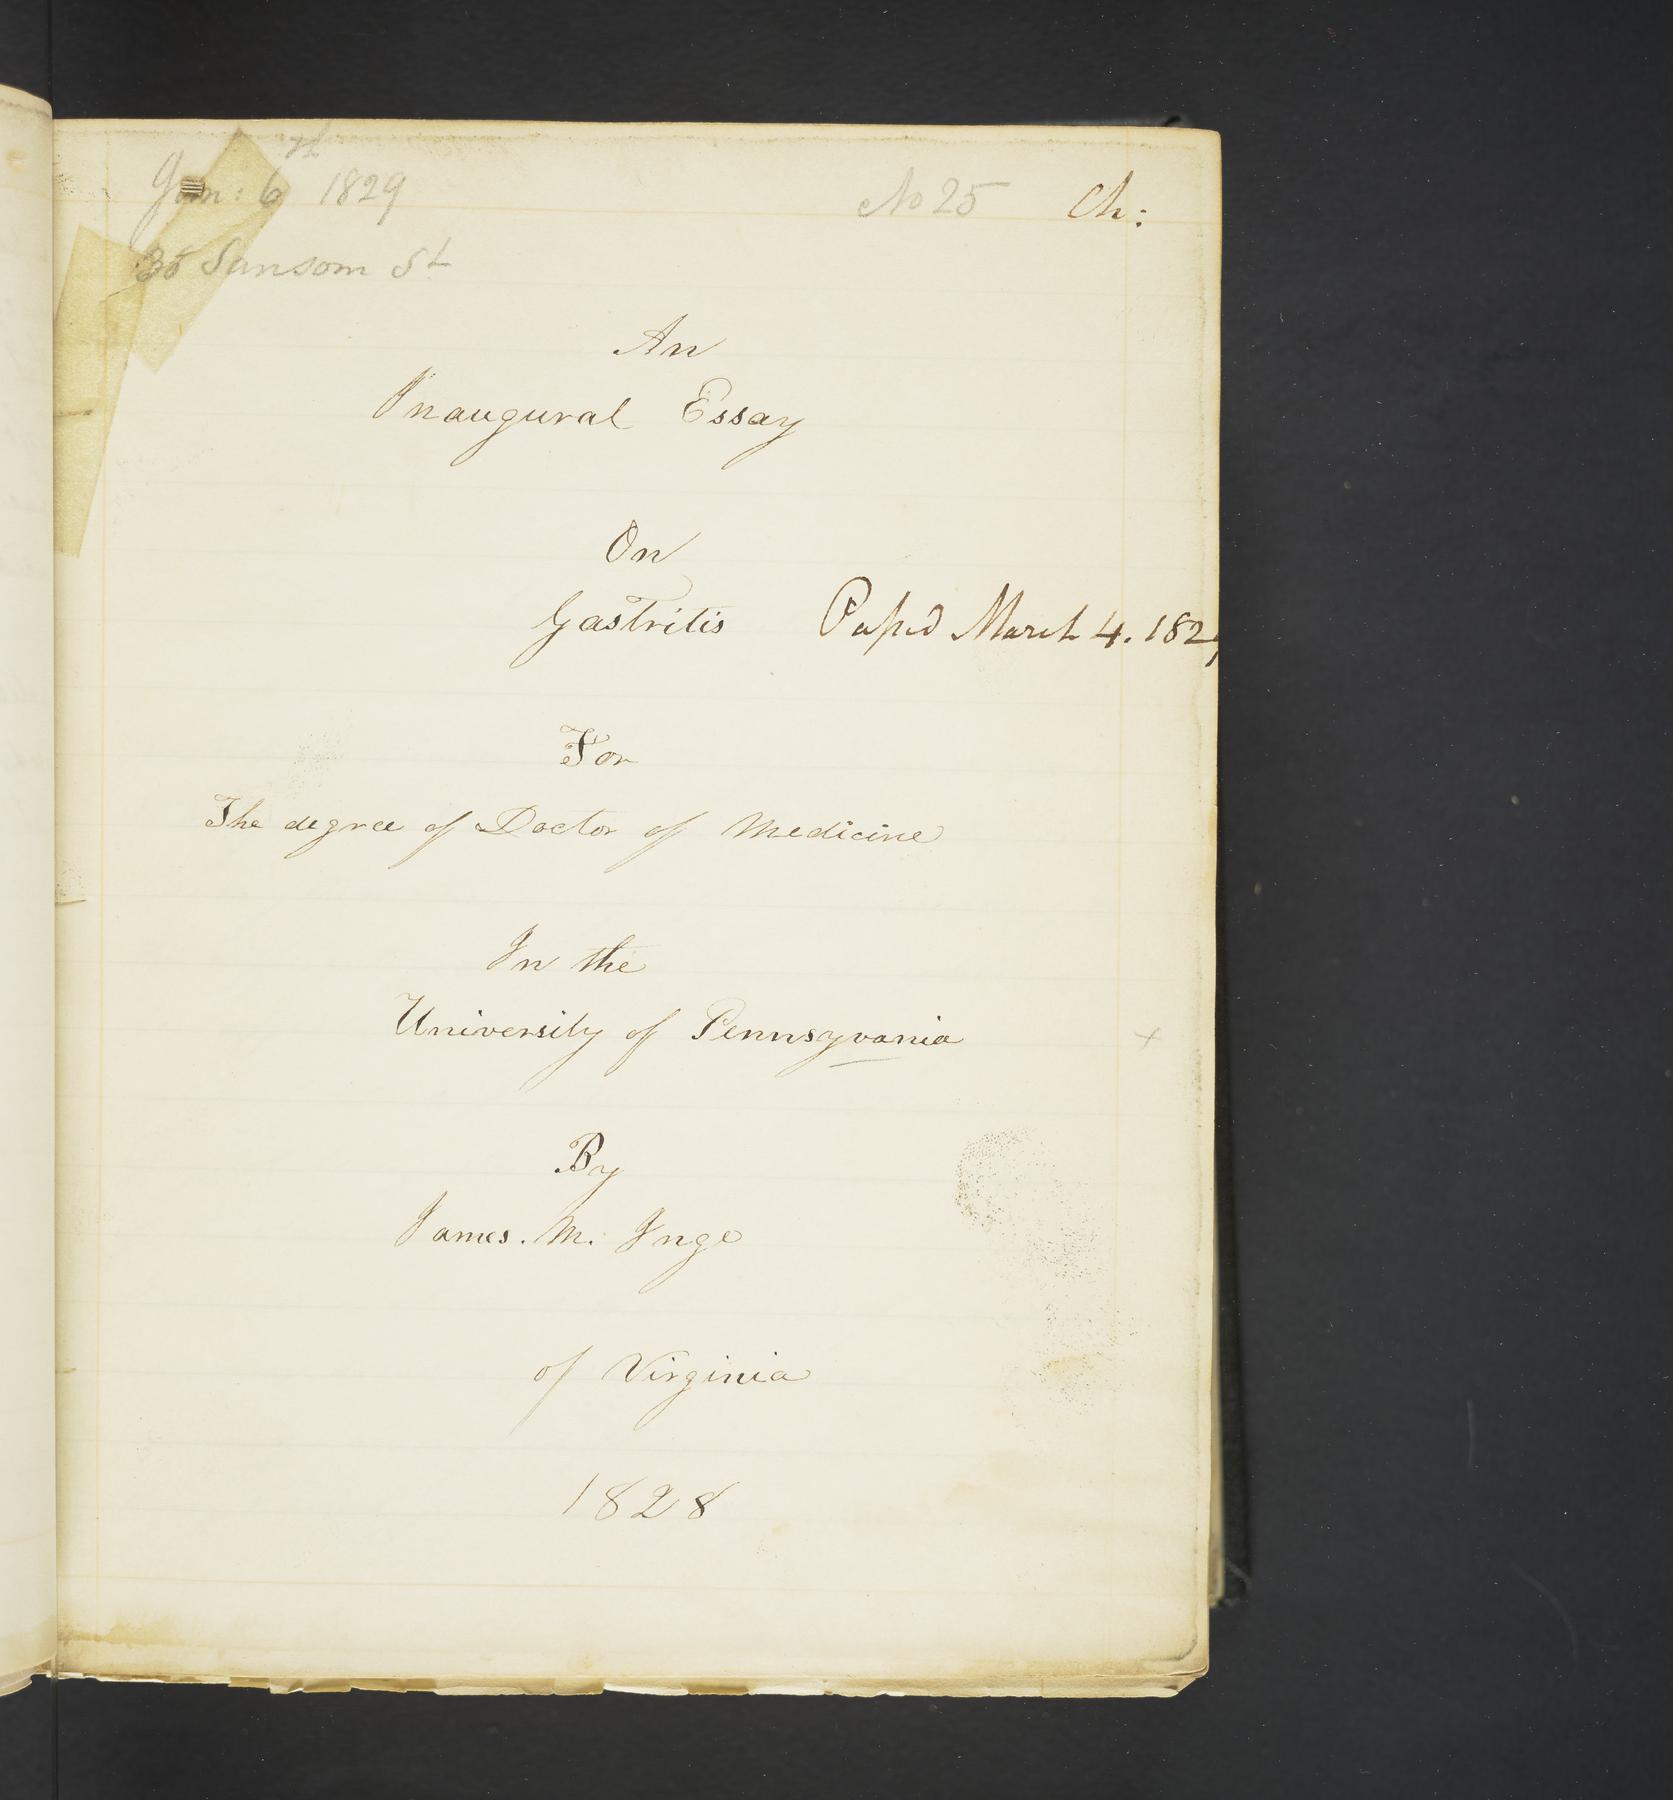 Jan: 6th 1829
No 25
Ch:
Sansom St
An
Inaugural Essay
On
Gastritis
Passed March 4. 182
For
The degree of Doctor of Medicine
In the
University of Pennsyvania
By
James. M. Inge
of Virginia
1828